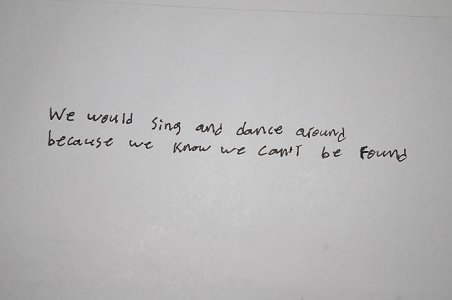 We would sing and dance around
because we know we can't be found